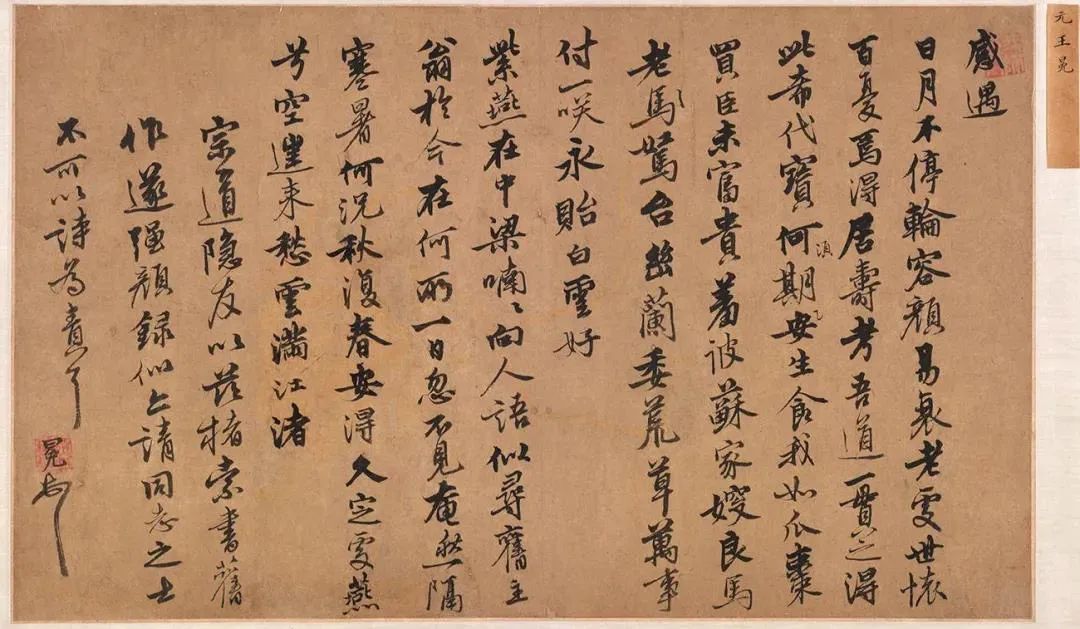 元王冕
感遇
日月不停輪容顏易衰老處世懷
百憂焉得居壽考吾道一貫之得
此希代寶何須期安生食我如瓜棗
買臣未富貴羞彼蘇家嫂良馬
老馬駑台幽蘭委荒草萬事
付一咲永貽白雲好
紫燕在中梁喃〻向人語似尋舊主
翁於今在何所一日忽不見奄然隔
寒暑何況秋復春安得久定處燕
兮空來愁雲滿江渚
宗道隐友以茲楮索書舊
作遂强顏録似上請同志之士
不可以詩為責
冕